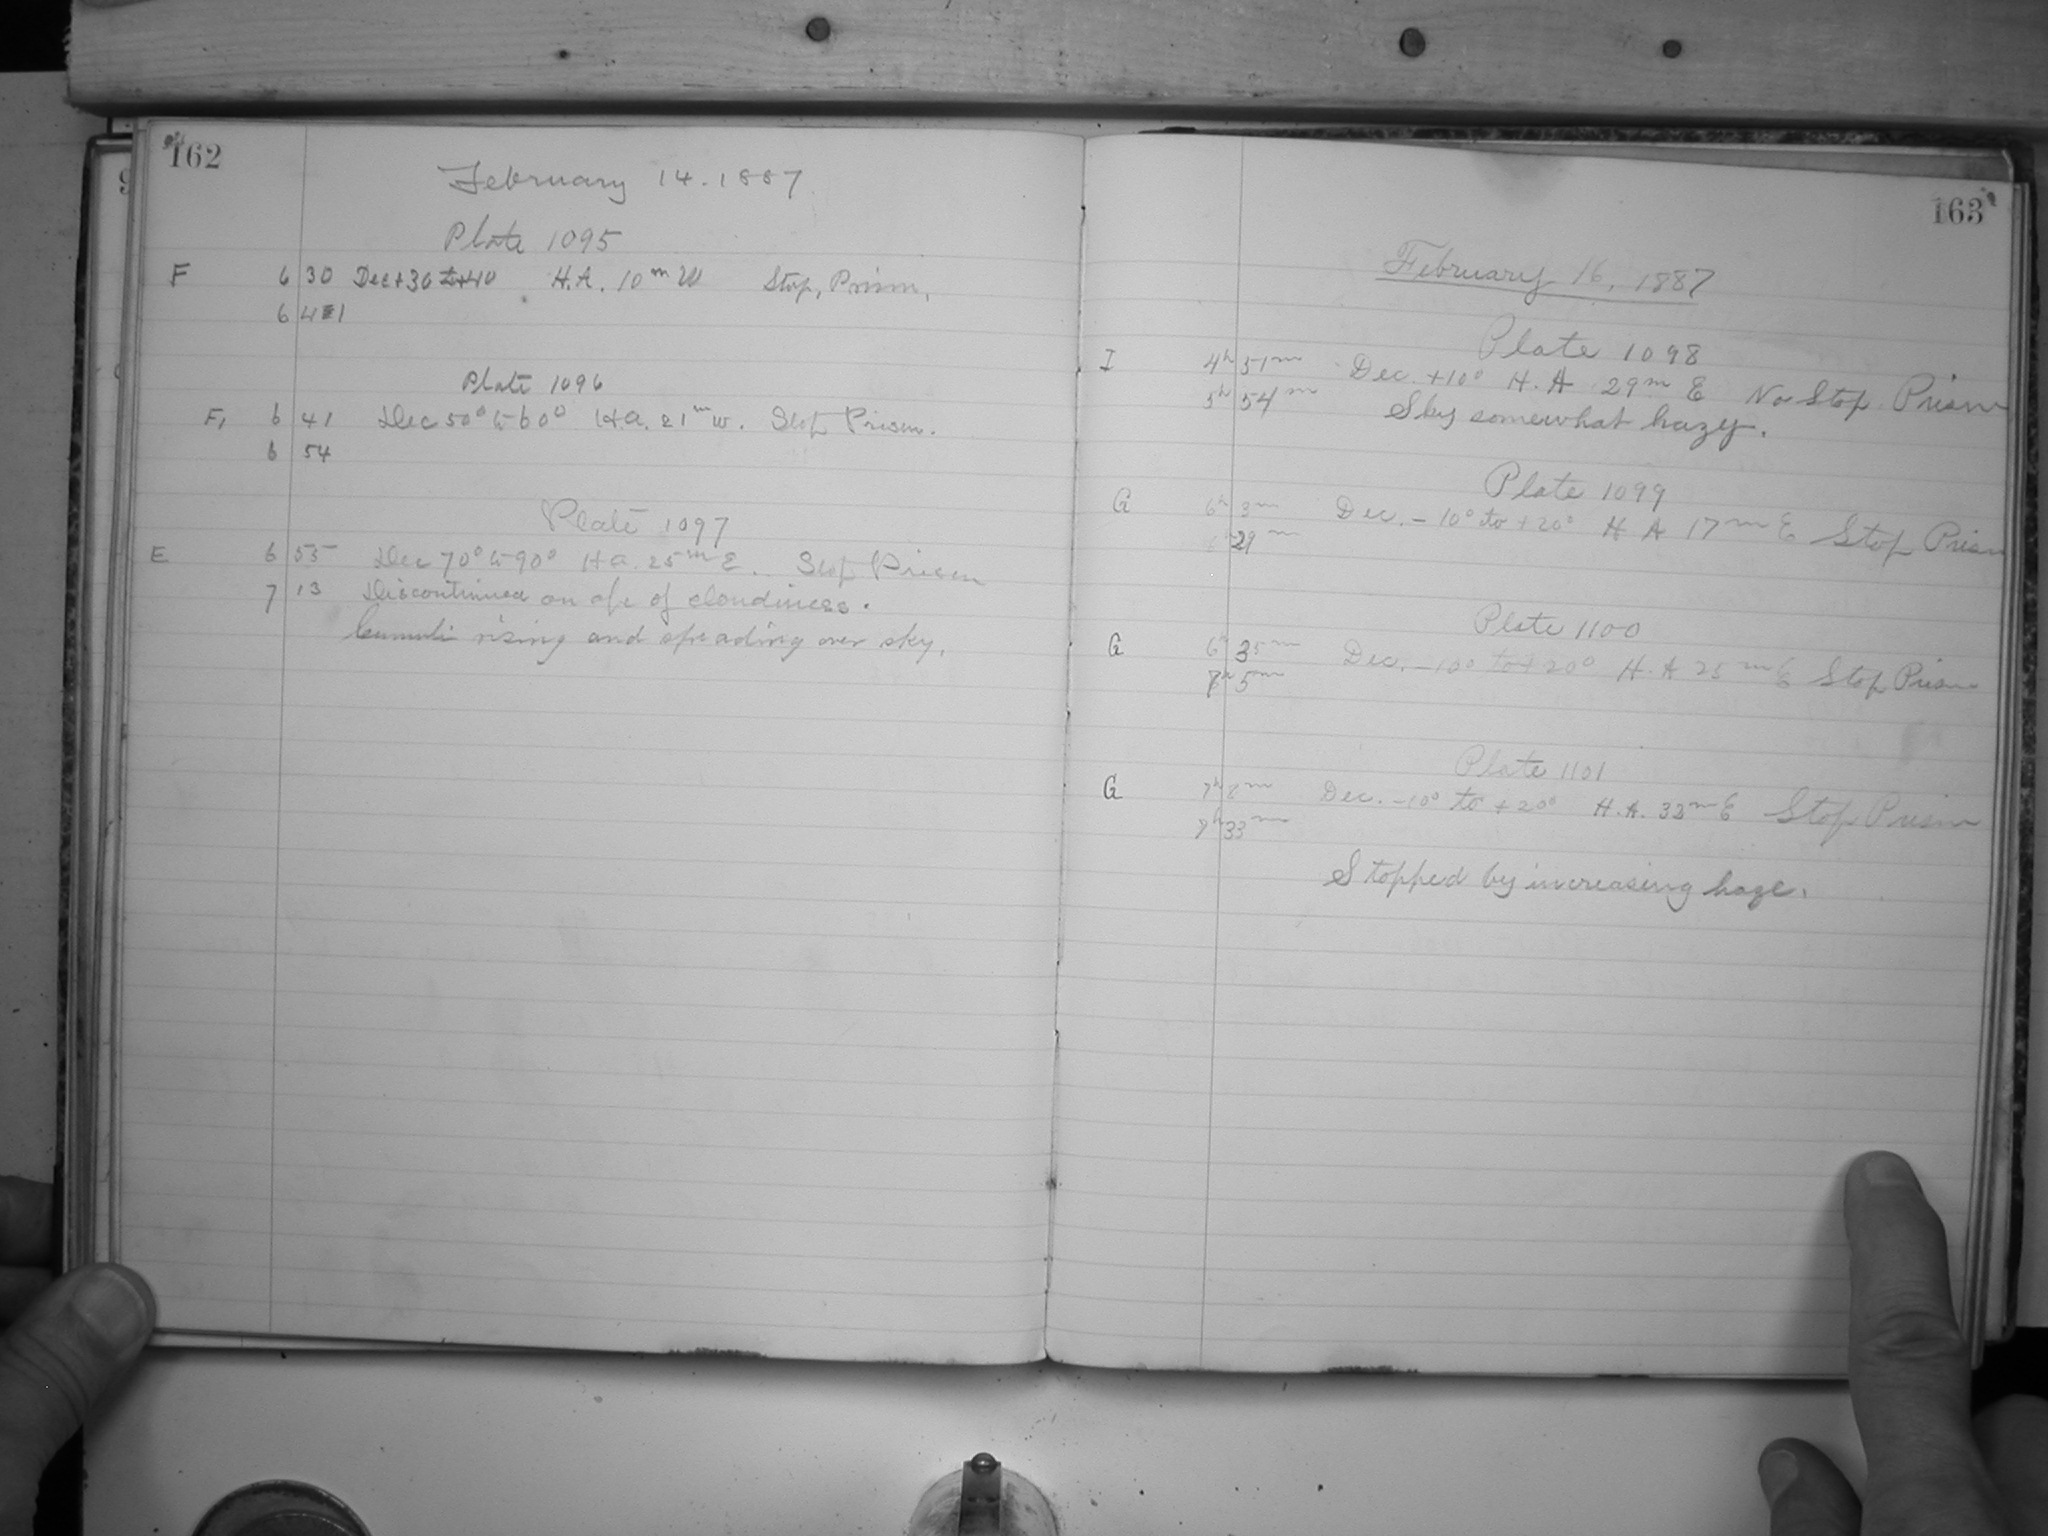 162
February 14. 1887
Plate 1095
F 6 30 Dec +30 to +40 H.A. 10m W Stop, Prism,
6 41
Plate 1096
F, 6 41 Dec 50° to 60° H.a. 21m W. Stop Prism.
6 54
Plate 1097
E 6 55 Dec 70° to 90° Ha. 25m E. Stop Prism
7 13 Discontinued on a/c of cloudiness.
Cumuli rising and spreading over sky.
163
February 16, 1887
Plate 1098
I 4h 51m Dec. +10° H.A 29m E No Stop Prism
5h 54m Sky somewhat hazy.
Plate 1099
G 6h 3m Dec. -10° to +20° H A 17m E Stop Prism
29m
Plate 1100
G 6h 35m Dec. -10° to +20° H.A 25m E Stop Prism
5m
Plate 1101
G 7h Dec. -10° to +20° H.A. 32m E Stop Prism
33m
Stopped by increasing haze.